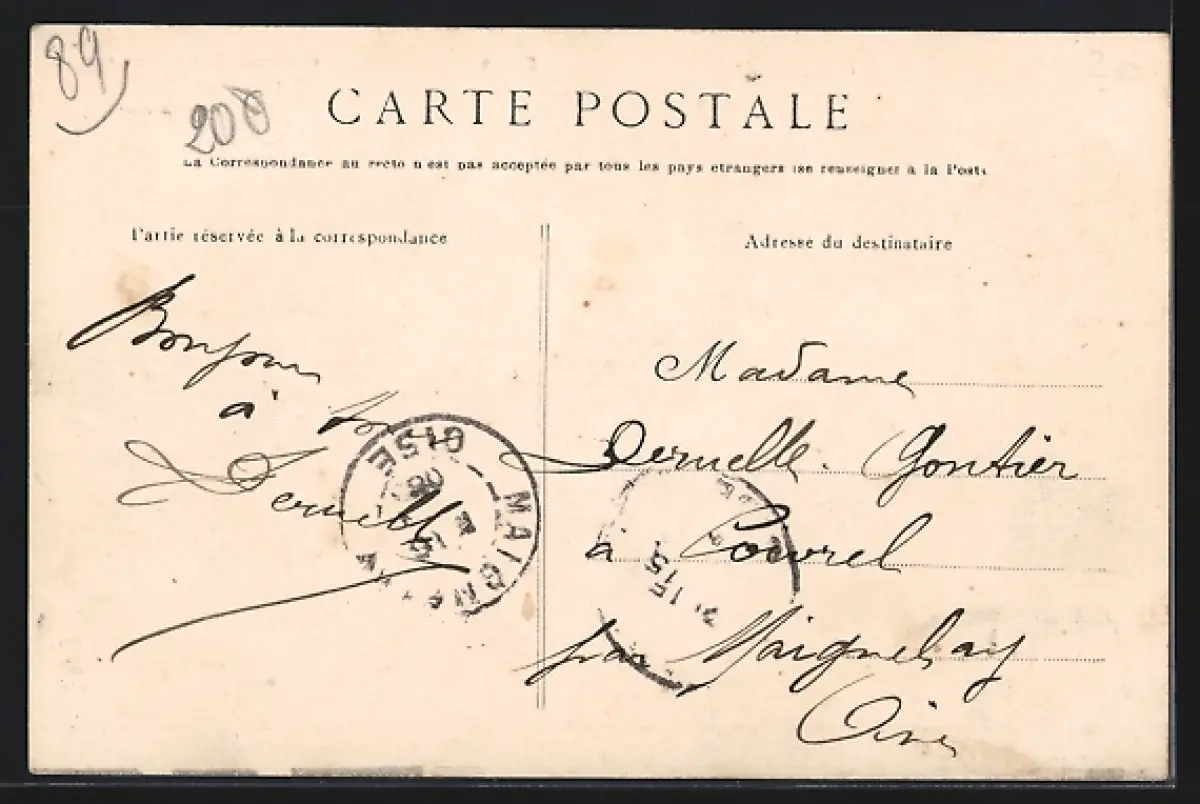 89
200
CARTE POSTALE
La Correspondance au recto n'est pas acceptée par tous les pays étrangers (se renseigner à la Poste
Partie réservée à la correspondance
Adresse du destinataire
Bonjour
à tous
Dernelle
Madame
Dernelle-Gontier
à Coivrel
par Maignelay
Oise
OISE
MAIGN
15